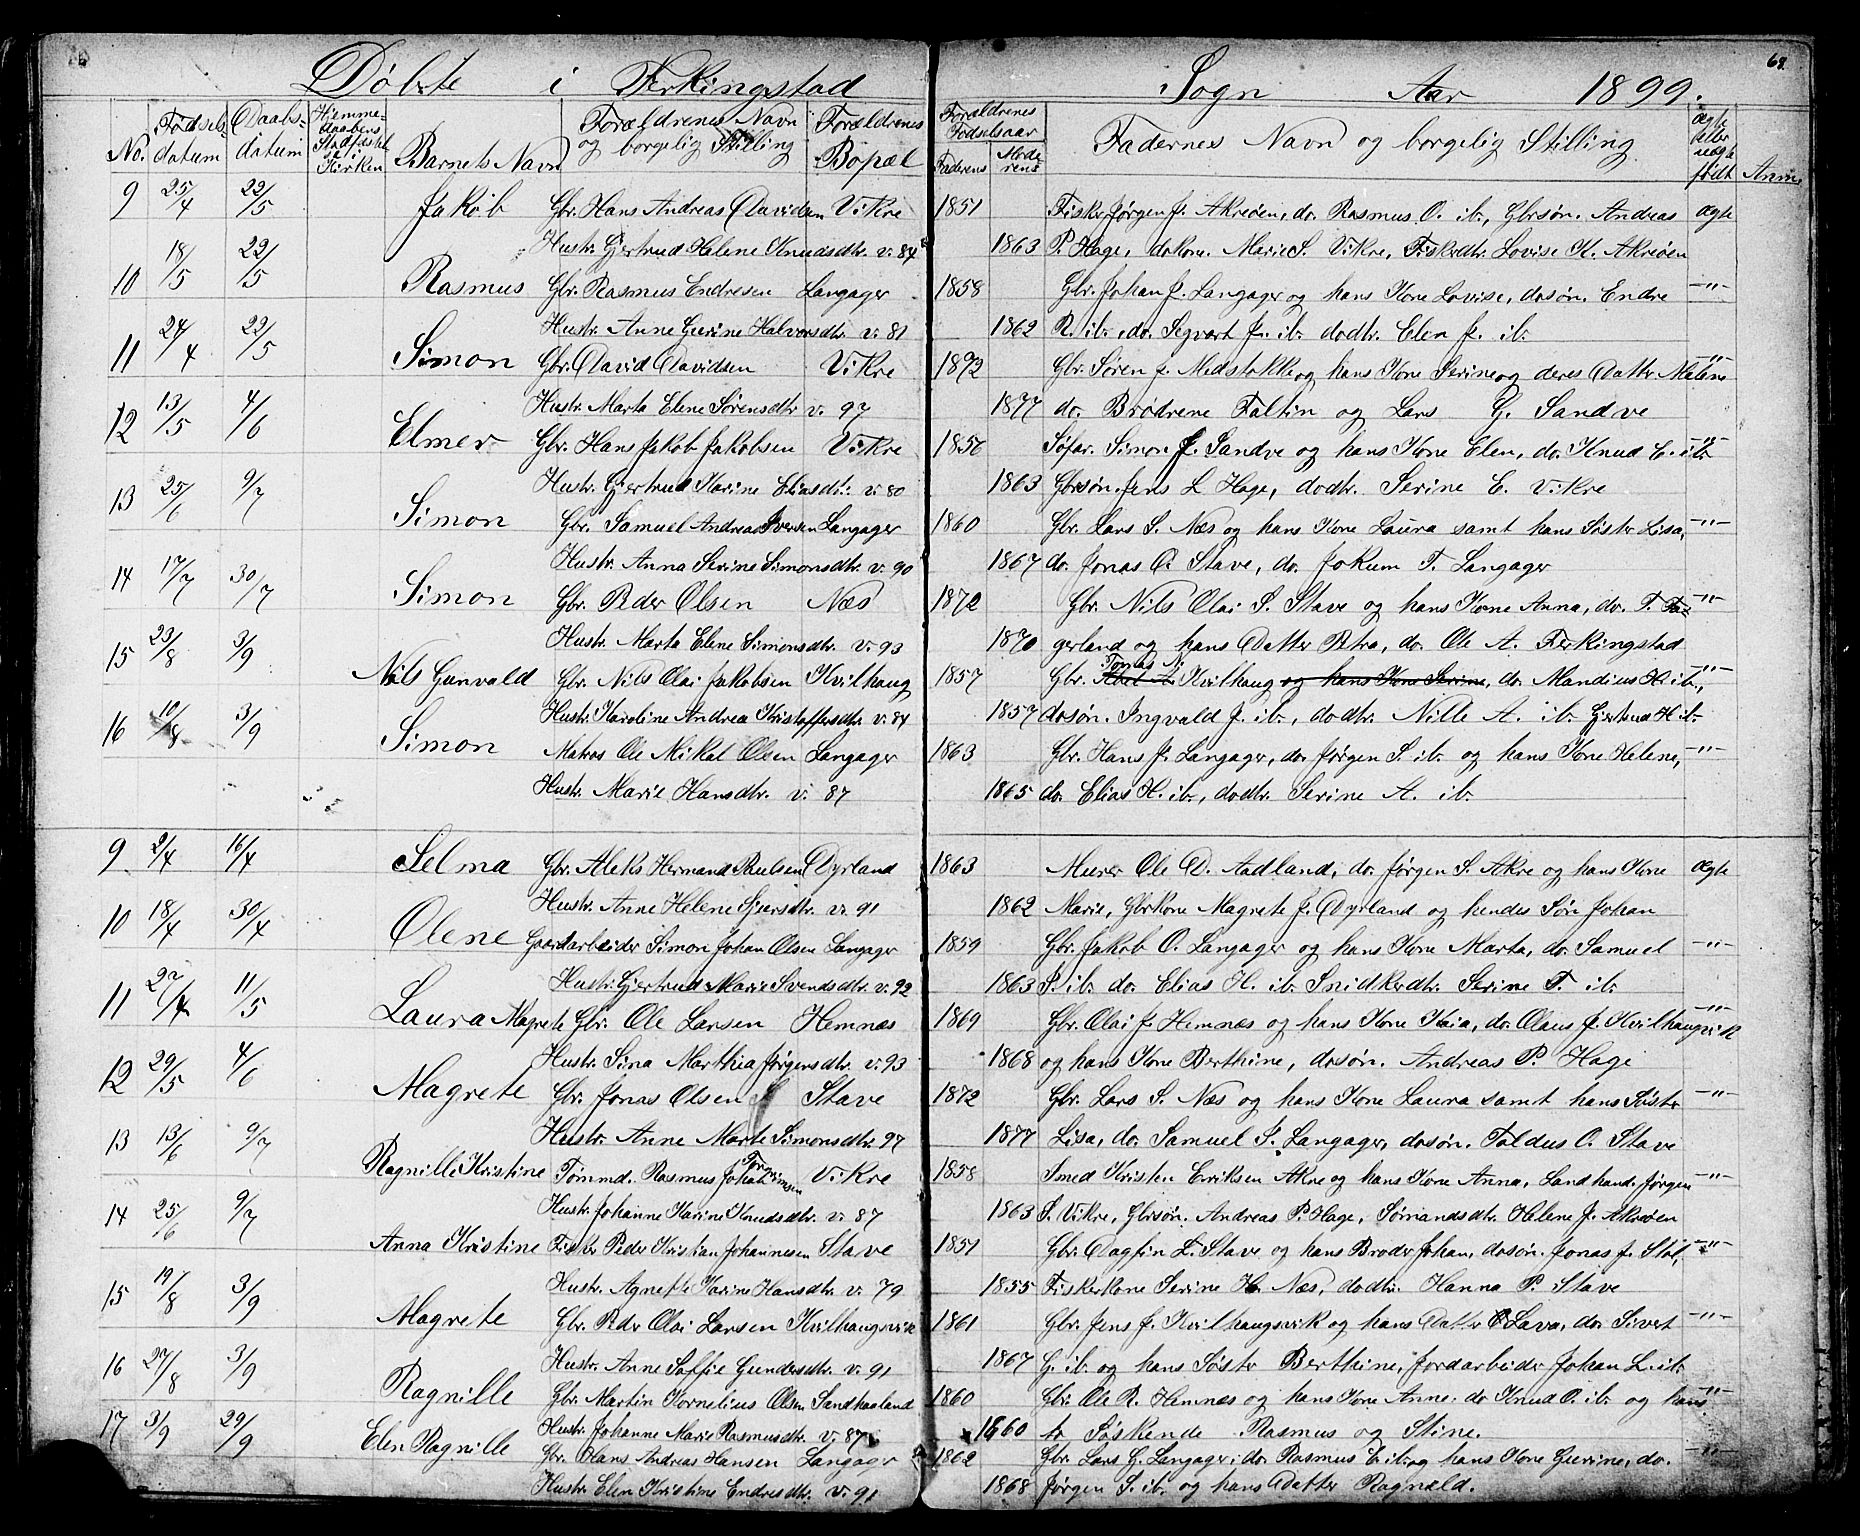 Døbte i Ferkingstad Sogn Aar 1899. 69.
No. Fødsels-datum Daabs-datum Hjemme-daabens Stadfæstelse i Kirken Barnets Navn Forældrenes Navn og borgelig Stilling Forældrenes Bopæl Forældrenes Fødselsaar Faderens Moderens Faderness Navn og borgelig Stilling ægte eller uægte født Anm.
9 25/4 22/5 Jakob Gbr. Hans Andreas Davidsen Vikre 1851 Fisker Jørgen J. Akrøen, do. Rasmus O. ib., Gbrsøn. Andreas ægte
Hustr. Gjertrud Helene Knudsdtr. v. 84 1863 P. Hage, dokone. Marie S. Vikre, Fiskerdtr. Lovise K. Akrøen
10 18/5 22/5 Rasmus Gbr. Rasmus Endresen Langager 1858 Gbr. Johan J. Langager og hans Kone Lovise, dosøn. Endre -"-
Hustr. Anne Gurine Halvorsdtr. v. 81 1862 R. ib., do. Segvart J. ib. dodtr. Elen J. ib.
11 24/4 22/5 Simon Gbr. David Davidsen Vikre 1872 Gbr. Søren J. Medstokke og hans Kone Serine og deres Datter Malene -"-
Hustr. Marta Elene Sørensdtr v. 97 1877 do. Brødrene Faltin og Lars G. Sandve
12 13/5 4/6 Elmer Gbr. Hans Jakob Jakobsen Vikre 1856 Søfar. Simon J. Sandve og hans Kone Elen, do. Knud E. ib. -"-
Hustr. Gjertrud Karine Eliasdtr. v. 80 1863 Gbrsøn. Jens L Hage, dodtr. Serine E. Vikre
13 25/6 9/7 Simon Gbr. Samuel Andreas Iversen Langager 1860 Gbr. Lars S. Næs og hans Kone Laura samt hans Søster Lisa, -"-
Hustr. Anna Serine Simonsdtr. v. 90 1867 do. Jonas O. Stave, do. Jokum T. Langager
14 17/7 30/7 Simon Gbr. Peder Olsen Næs 1872 Gbr. Nils Olai S. Stave og hans Kone Anna, do. T. Fa- -"-
Hustr. Marta Elene Simonsdtr. v. 93 1870 gerland og hans Datter Petra, do. Ole A. Ferkingstad
15 23/8 3/9 Nils Gunvald Gbr. Nils Olai Jakobsen Kvilhaug 1857 Gbr. Tomas N. Kvilhaug og hans Kone Serine, do. Mandius H. ib., -"-
Hustr. Karoline Andrea Kristoffersdtr. v. 84 1857 dosøn. Ingvald J. ib., dodtr. Nille A. ib. Gjertrud H. ib.
16 10/8 3/9 Simon Matros Ole Mikal Olsen Langager 1863 Gbr. Hans J. Langager, do. Jørgen S. ib. og hans Kone Helene, -"-
Hustr. Marie Hansdtr. v. 87 1865 do. Elias H. ib., dodtr. Serine A. ib.
9 2/4 16/4 Selma Gbr. Aleks Hermand Paulsen Dyrland 1863 Murer Ole D. Aadland, do. Jørgen S. Akre og hans Kone ægte
Hustr. Anne Helene Sjursdtr. v. 91 1862 Marie, Gbrkone Magrete J. Dyrland og hendes Søn Johan
10 18/4 30/4 Olene Gaardarbeider Simon Johan Olsen Langager 1859 Gbr. Jakob O. Langager og hans Kone Marta, do. Samuel -"-
Hustr. Gjertrud Marie Svendsdtr. v. 92 1863 S. ib. do. Elias H. ib. Snidkerdtr. Serine T. ib.
11 27/4 11/5 Laura Magrete Gbr. Ole Larsen Hemnæs 1869 Gbr. Olai J. Hemnæs og hans Kone Kaia, do. Olaus J. Kvilhaugvik -"-
Hustr. Sina Marthea Jørgensdtr. v. 93 1868 og hans Kone Berthine, dosøn. Andreas P. Hage
12 29/5 4/6 Magrete Gbr. Jonas Olsen Stave 1872 Gbr. Lars S. Næs og hans Kone Laura samt hans Søster -"-
Hustr. Anne Marte Simonsdtr. 97 1877 Lisa, do. Samuel S. Langager, dosøn. Toldus O. Stave
13 13/6 9/7 Ragnille Kristine Tømmd. Rasmus Johan Vikre 1858 Smed Kristen Eriksen Akre og hans Kone Anna, Landhand. Jørgen -"-
Hustr. Johanne Karine Knudsdtr. v. 87 1863 S. Vikre, Gbrsøn. Andreas P. Hage, Sømandsdtr. Helene J. Akrøen
14 25/6 9/7 Anna Kristine Fisker Peder Kristian Johannesen Stave 1851 Gbr. Dagfin L. Stave og hans Broder Johan, dosøn. Jonas J. Stol, -"-
Hustr. Agnete Karine Hansdtr. v. 79 1855 Fiskerkone Serine H. Næs, dodtr. Hanna P. Stave
15 19/8 3/9 Magrete Gbr. Peder Olai Larsen Kvilhaugsvik 1861 Gbr. Jens J. Kvilhaugsvik og hans Datter Lava, do. Sivert -"-
Hustr. Anne Soffie Gundersdtr. v. 91 1867 G. ib. og hans Søster Berthine, Jordarbeider Johan L. ib.
16 27/8 3/9 Ragnille Gbr. Martin Kornelius Olsen Sandhaaland 1860 Gbr. Ole R. Hemnæs og hans Kone Anne, do Knud O. ib. og hans -"-
Hustr. Johanne Marie Rasmusdtr. v. 87 1860 to Søskende Rasmus og Stine.
17 3/9 29/9 Elen Ragnille Gbr. Hans Andreas Hansen Langager 1862 Gbr. Lars G. Langager, do. Rasmus E. ib. og hans Kone Gurine, do. -"-
Hustr. Elen Kristine Endresdtr. v. 91 1868 Jørgen S. ib. og hans Datter Ragnæld.